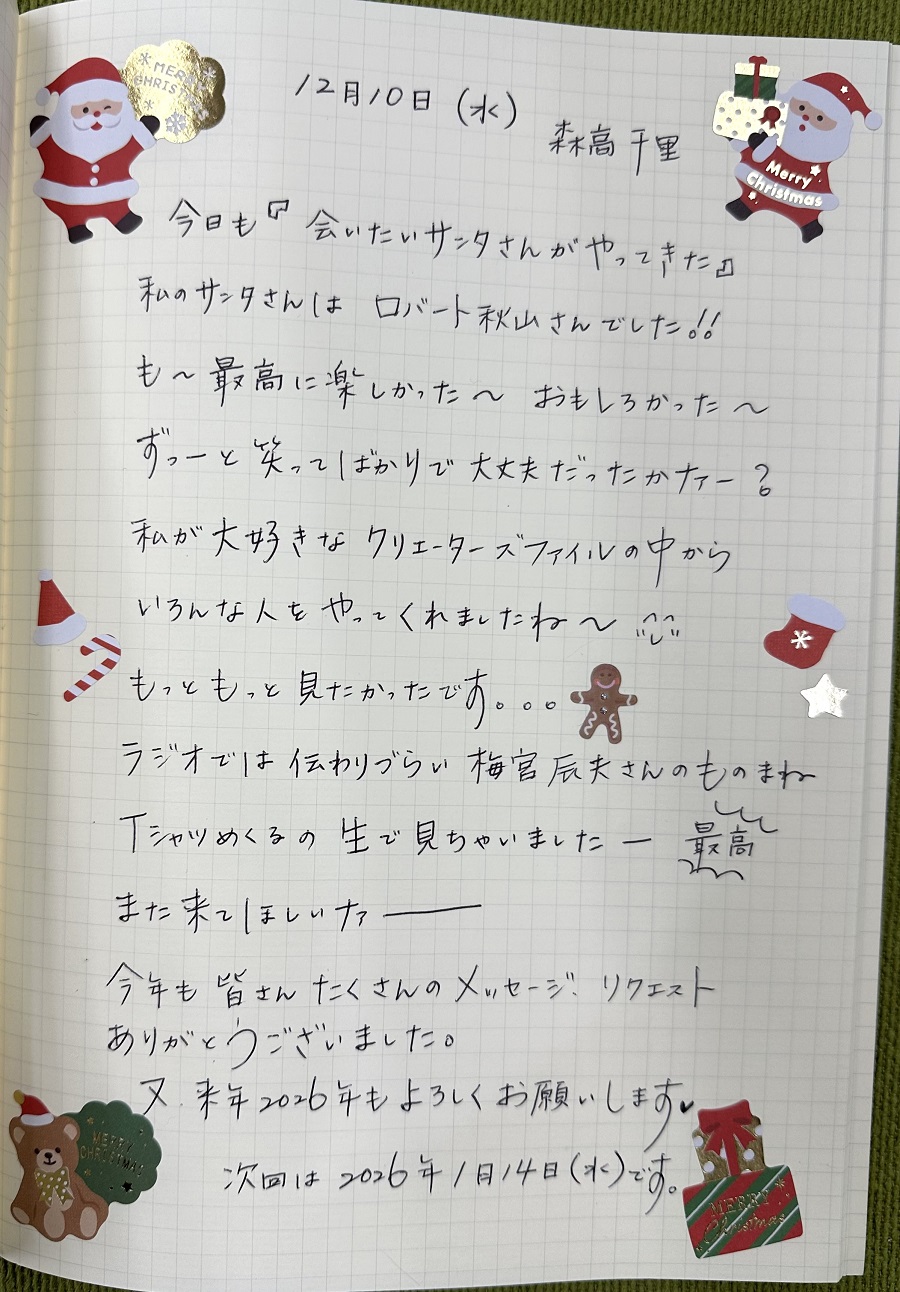 MERRY CHRISTMAS
12月10日(水)
森高千里
Merry Christmas
今日も『会いたいサンタさんがやってきた』
私のサンタさんは ロバート秋山さんでした!!
も〜最高に楽しかった〜 おもしろかった〜
ずっーと笑ってばかりで大丈夫だったかナァー?
私が大好きな クリエーターズファイルの中から
いろんな人を やってくれましたね〜
もっともっと見たかったです。。。
ラジオでは伝わりづらい 梅宮辰夫さんのものまね
Tシャツめくるの 生で見ちゃいましたー 最高
また来てほしいナァー
今年も 皆さん たくさんのメッセージ.リクエスト
ありがとうございました。
又.来年2026年もよろしくお願いします♥
次回は 2026年1月14日(水)です。
MERRY CHRISTMAS
MERRY Christmas